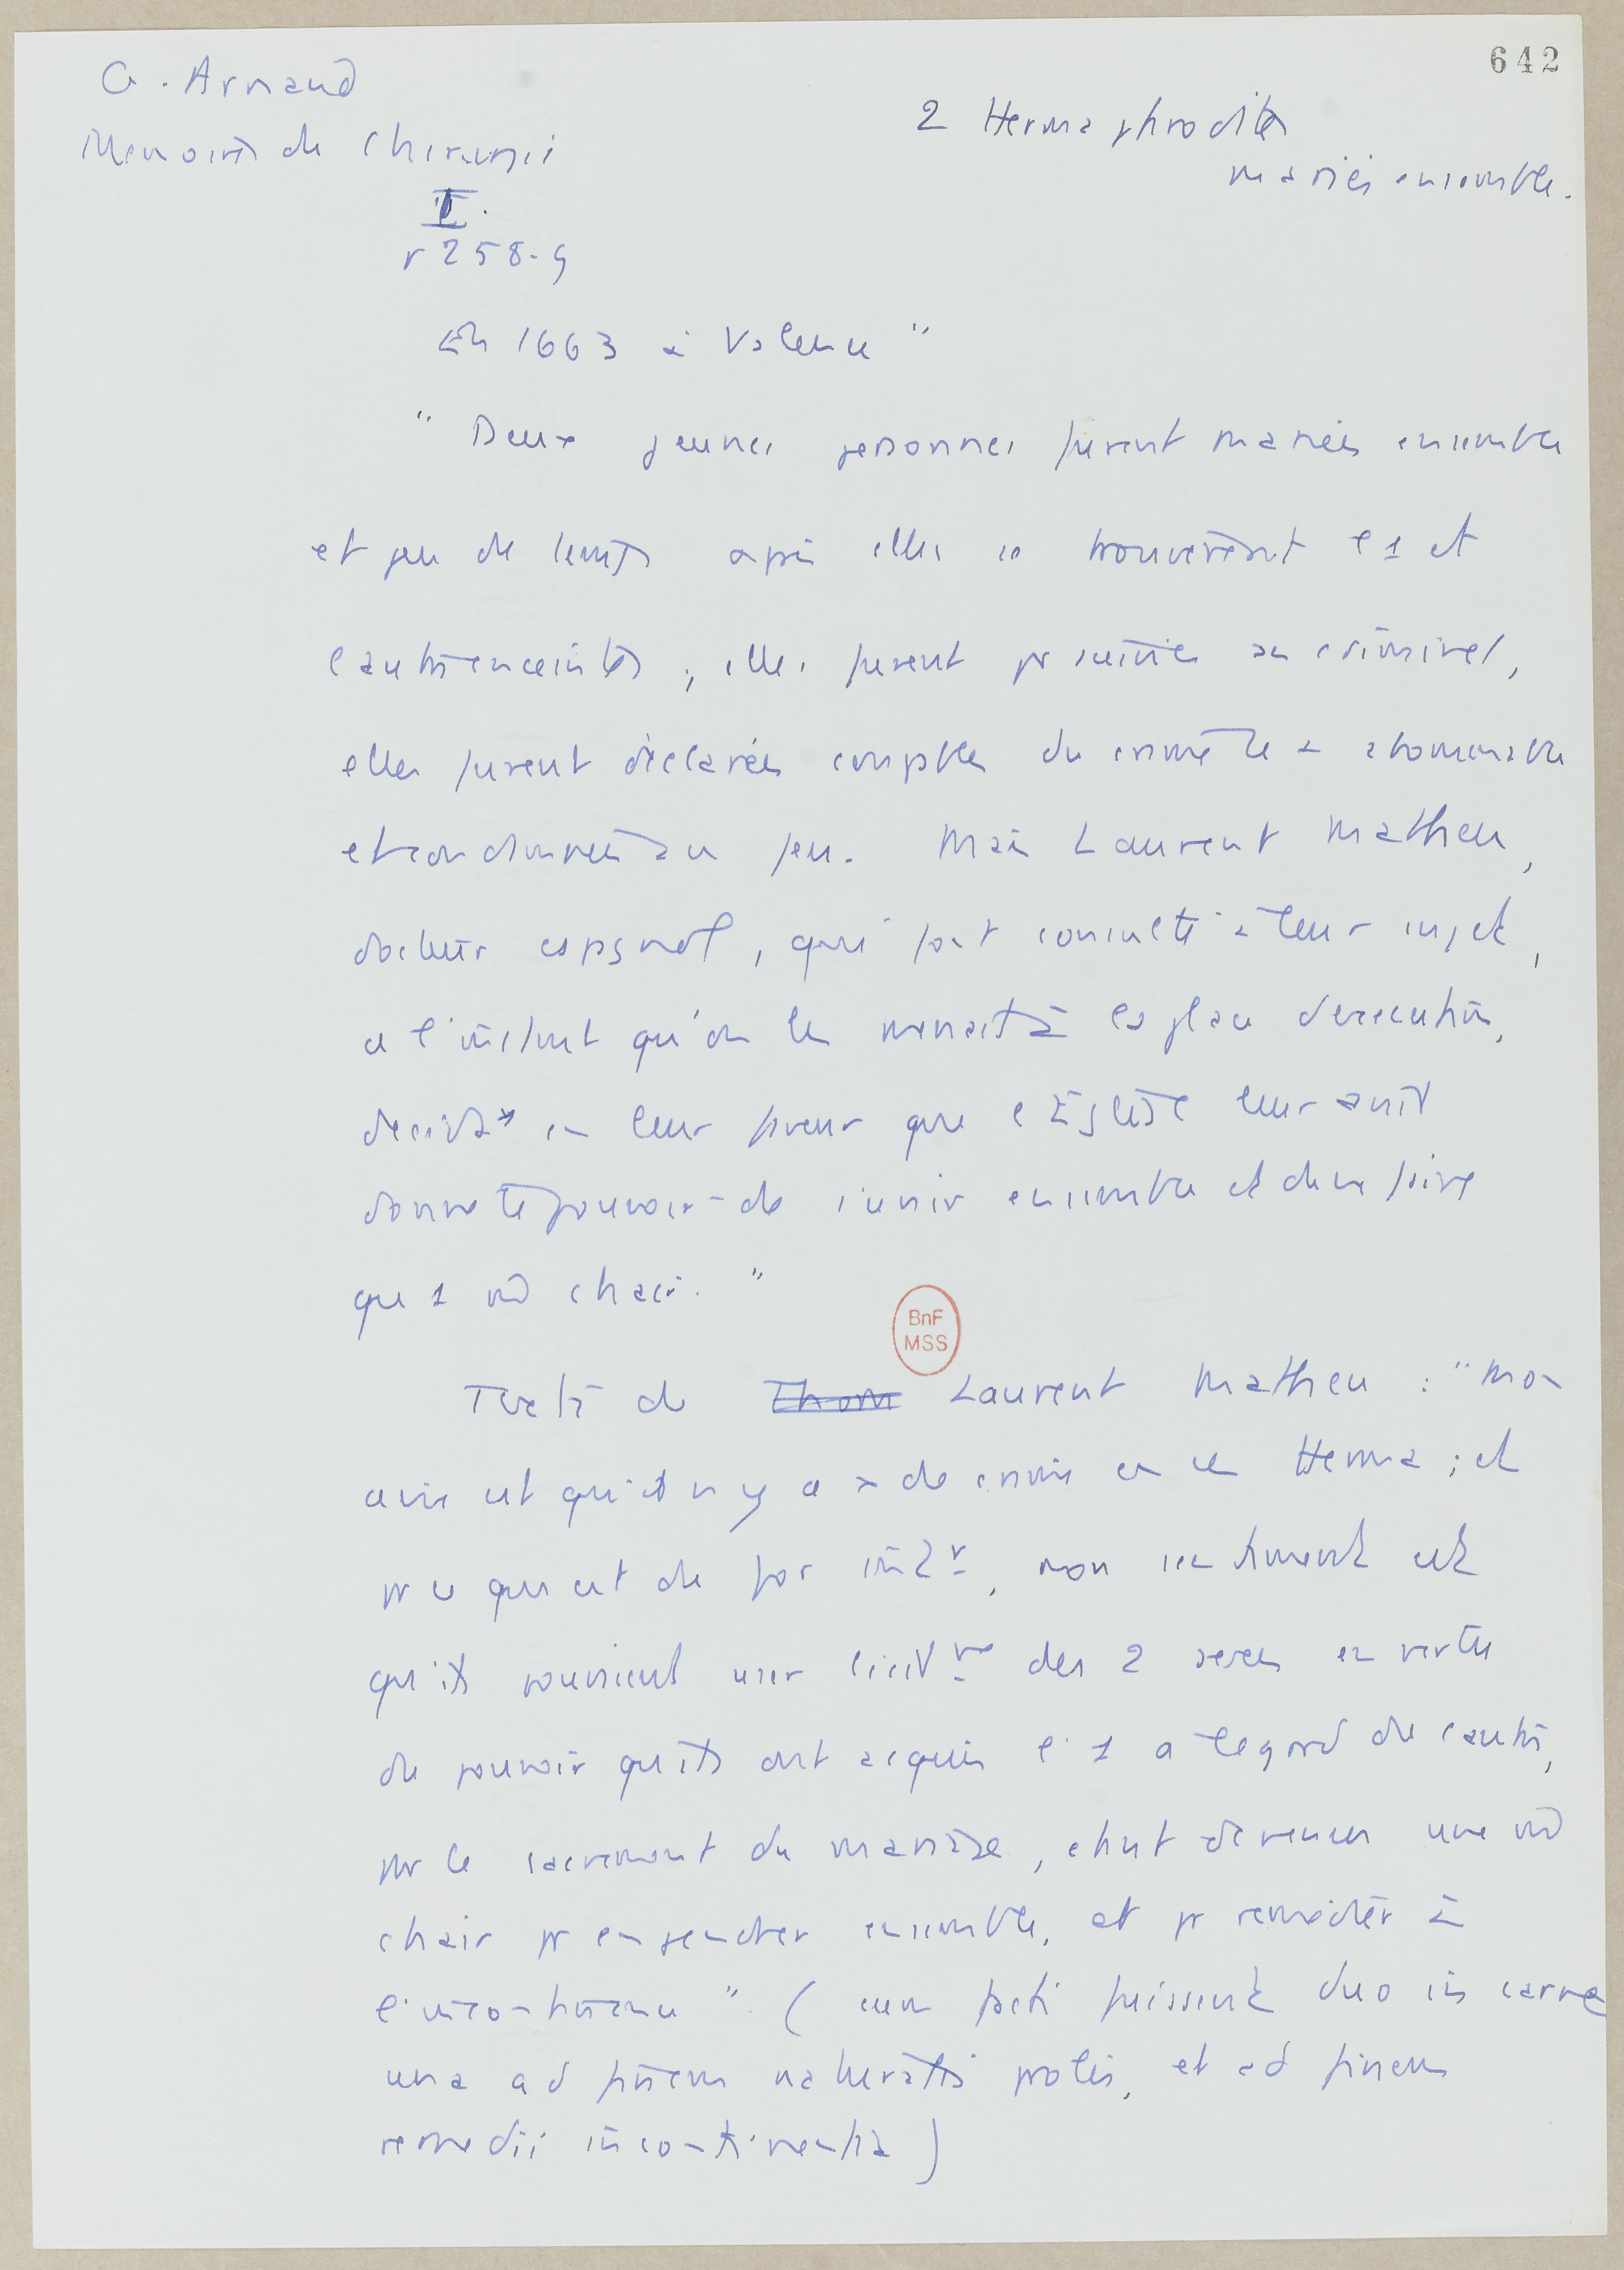 642
G. Arnaud
Memoires de chirurgie
2 Hermaphrodites
mariés ensemble.
II.
p 258-9
En 1663 à Valence "
" Deux jeunes personnes furent mariées ensemble
et peu de temps après elles se trouvèrent l'1 et
l'autre enceintes ; elles furent poursuivies au criminel,
elles furent déclarées coupables du crime le + abominable
et condamnées au feu. Mais Laurent Matheu,
docteur espagnol, qui fut consulté à leur sujet,
a l'instant qu'on les menait à la place d'exécution,
decida en leur faveur que l'Eglise leur avait
donné le pouvoir de s'unir ensemble et de ne faire
que 1 chair. "
Texte de Thom Laurent Matheu : " Mon
avis est qu'il n'y a pas de crime en ces Herma ; et
pr ce qui est du for intr, mon sentiment est
qu'ils pouvaient user licitmt des 2 sexes en vertu
du pouvoir qu'ils ont acquis l'1 a l'egard de l'autre,
par le sacrement du mariage, étant devenus une
chair pr engendrer ensemble, et pr remédier à
l'incontinence ". ( cum facti fuissent duo in carne
una ad finem naturalis prolis, et ad finem
remedii incontinentia )
BnF
MSS